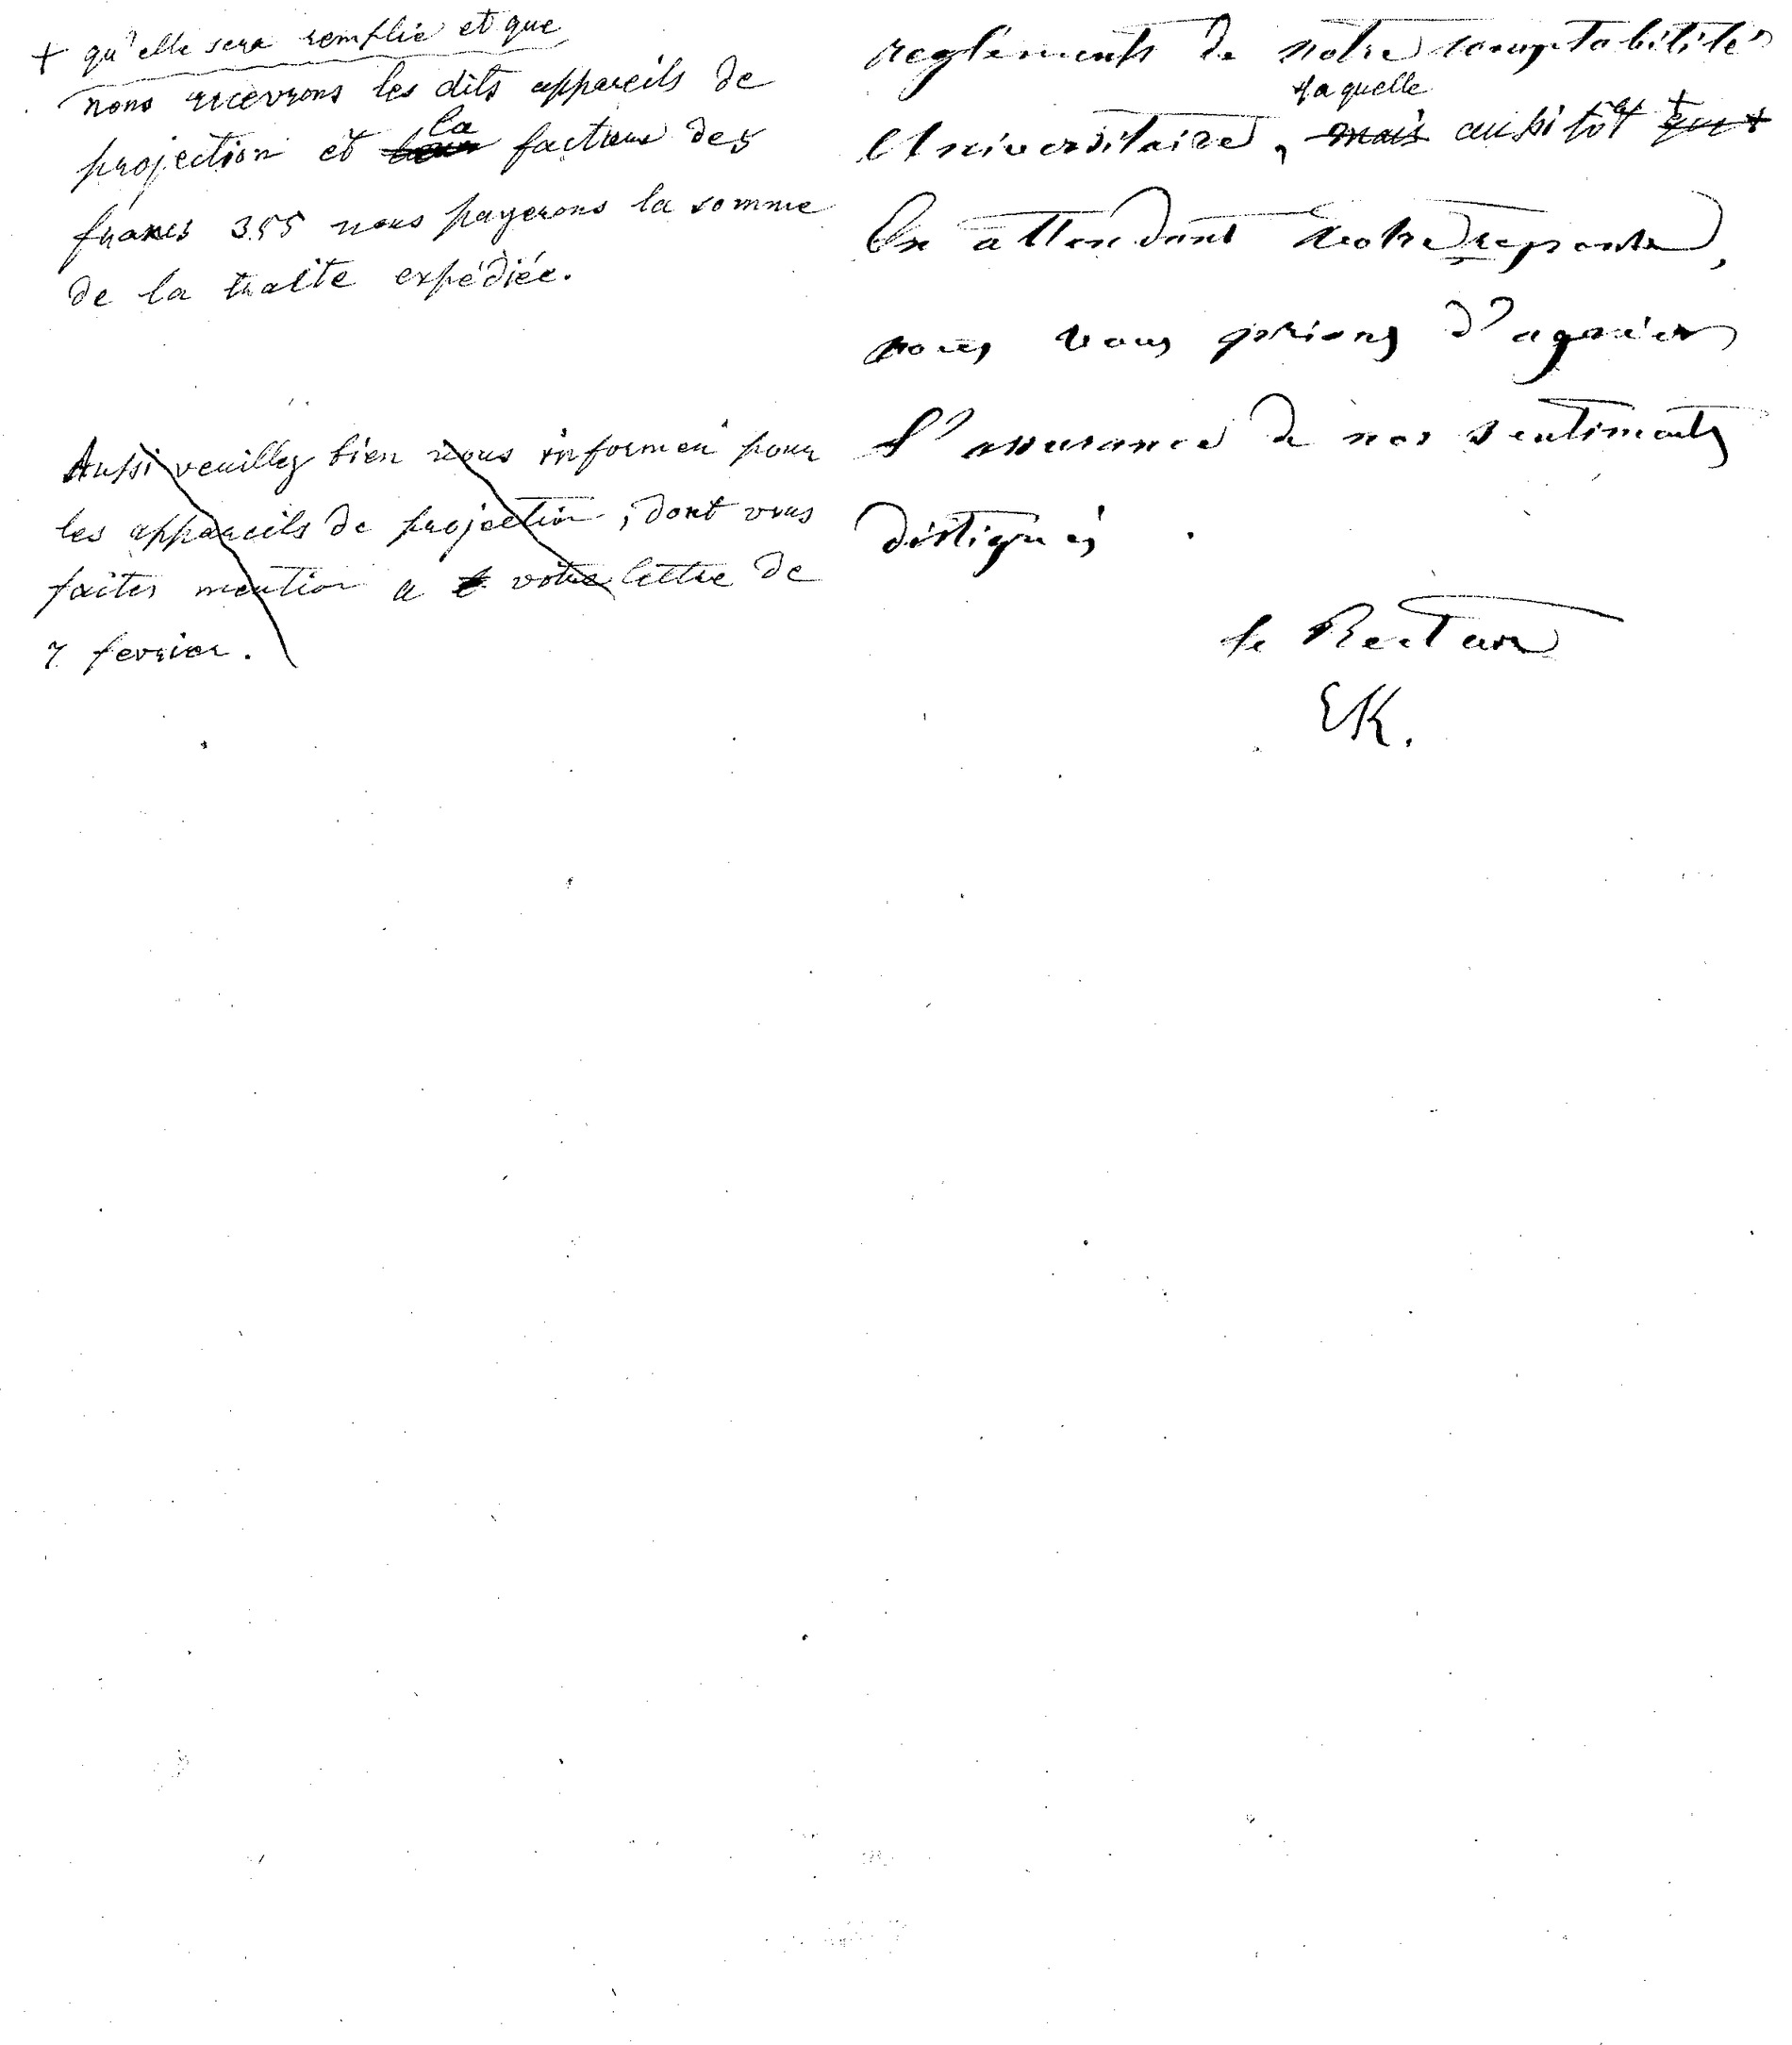 + qu'elle sera remplie et que
nous recevrons les dits appareils de
la
projection et facture des
francs 355 nous payerons la somme
de la traite expédiée.
Aussi veuillez bien nous informer pour
les appareils de projection, dont vous
faites mention a votre lettre de
7 fevrier.
reglements de notre comptabilité
laquelle
Universitaire, mais aussi tôt que +
En attendant votre reponse,
nous vous prions d'agréer
l'assurance de nos sentiments
distigués.
le Recteur
EK.